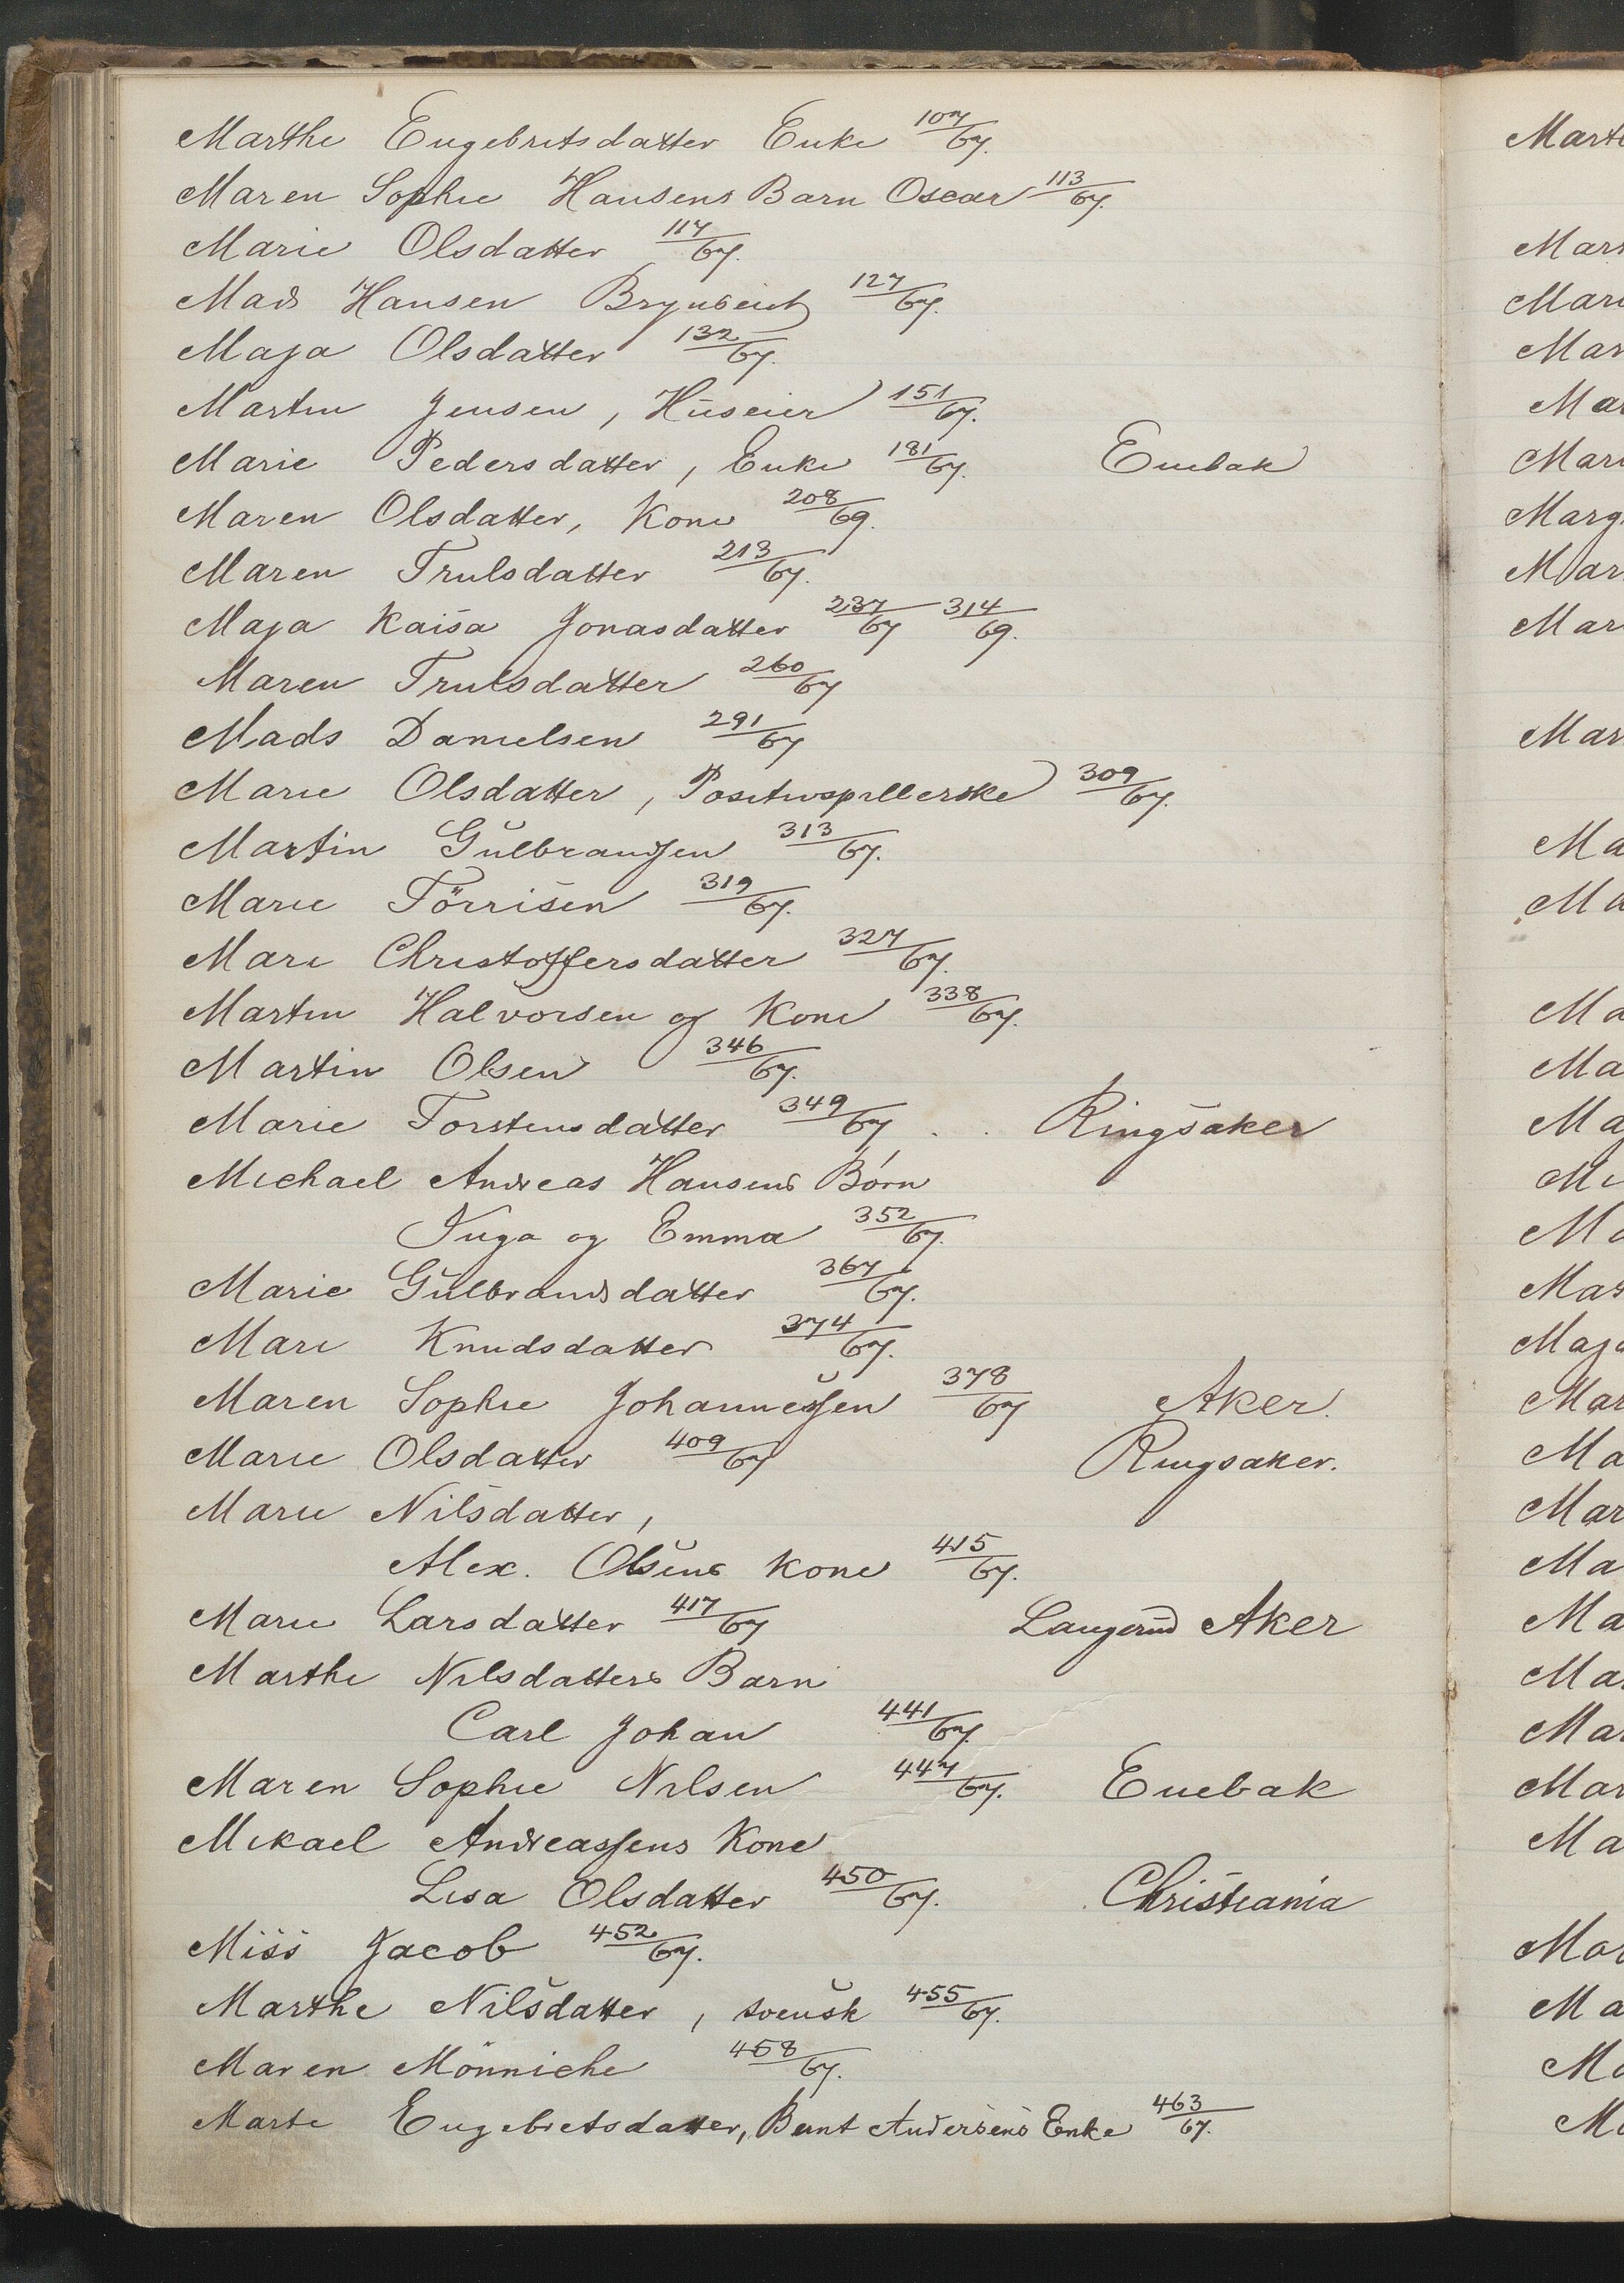 Marthe Engebretsdatter Enke 107/67.
Maren Sophie Hansens Barn Oscar 113/67.
Marie Olsdatter 117/67.
Mads Hansen 127/67.
Maja Olsdatter 132/67.
Martin Jensen, Huseier 151/67.
Marie Pedersdatter, Enke 181/67. Enebak
Maren Olsdatter, Kone 208/69.
Maren Trulsdatter 213/67.
Maja Kaisa Jonasdatter 237/67 314/69.
Maren Trulsdatter 260/67
Mads Danielsen 291/67
Marie Olsdatter, Positivspillerske 309/67.
Martin Gulbrandsen 313/67.
Marie Törrisen 319/67.
Mari Christoffersdatter 327/67.
Martin Halvorsen og Kone 338/67.
Martin Olsen 346/67.
Marie Torstensdatter 349/67 . . Ringsaker
Michael Andreas Hansens Børn
Inga og Emma 352/67.
Marie Gulbrandsdatter 367/67.
Mari Knudsdatter 374/67.
Maren Sophie Johannessen 378/67 Aker.
Marie Olsdatter 409/67 Ringsaker.
Marie Nilsdatter,
Alex. Olsens Kone 415/67.
Marie Larsdatter 417/67 Langerud Aker
Marthe Nilsdatters Barn
Carl Johan 441/67.
Maren Sophie Nilsen 447/67. Enebak
Mikael Andreassens Kone
Lisa Olsdatter 450/67. Christiania
Miss Jacob 452/67.
Marthe Nilsdatter, svensk 455/67.
Maren Mönniche 458/67.
Marte Engebretsdatter, Bernt Andersens Enke 463/67.